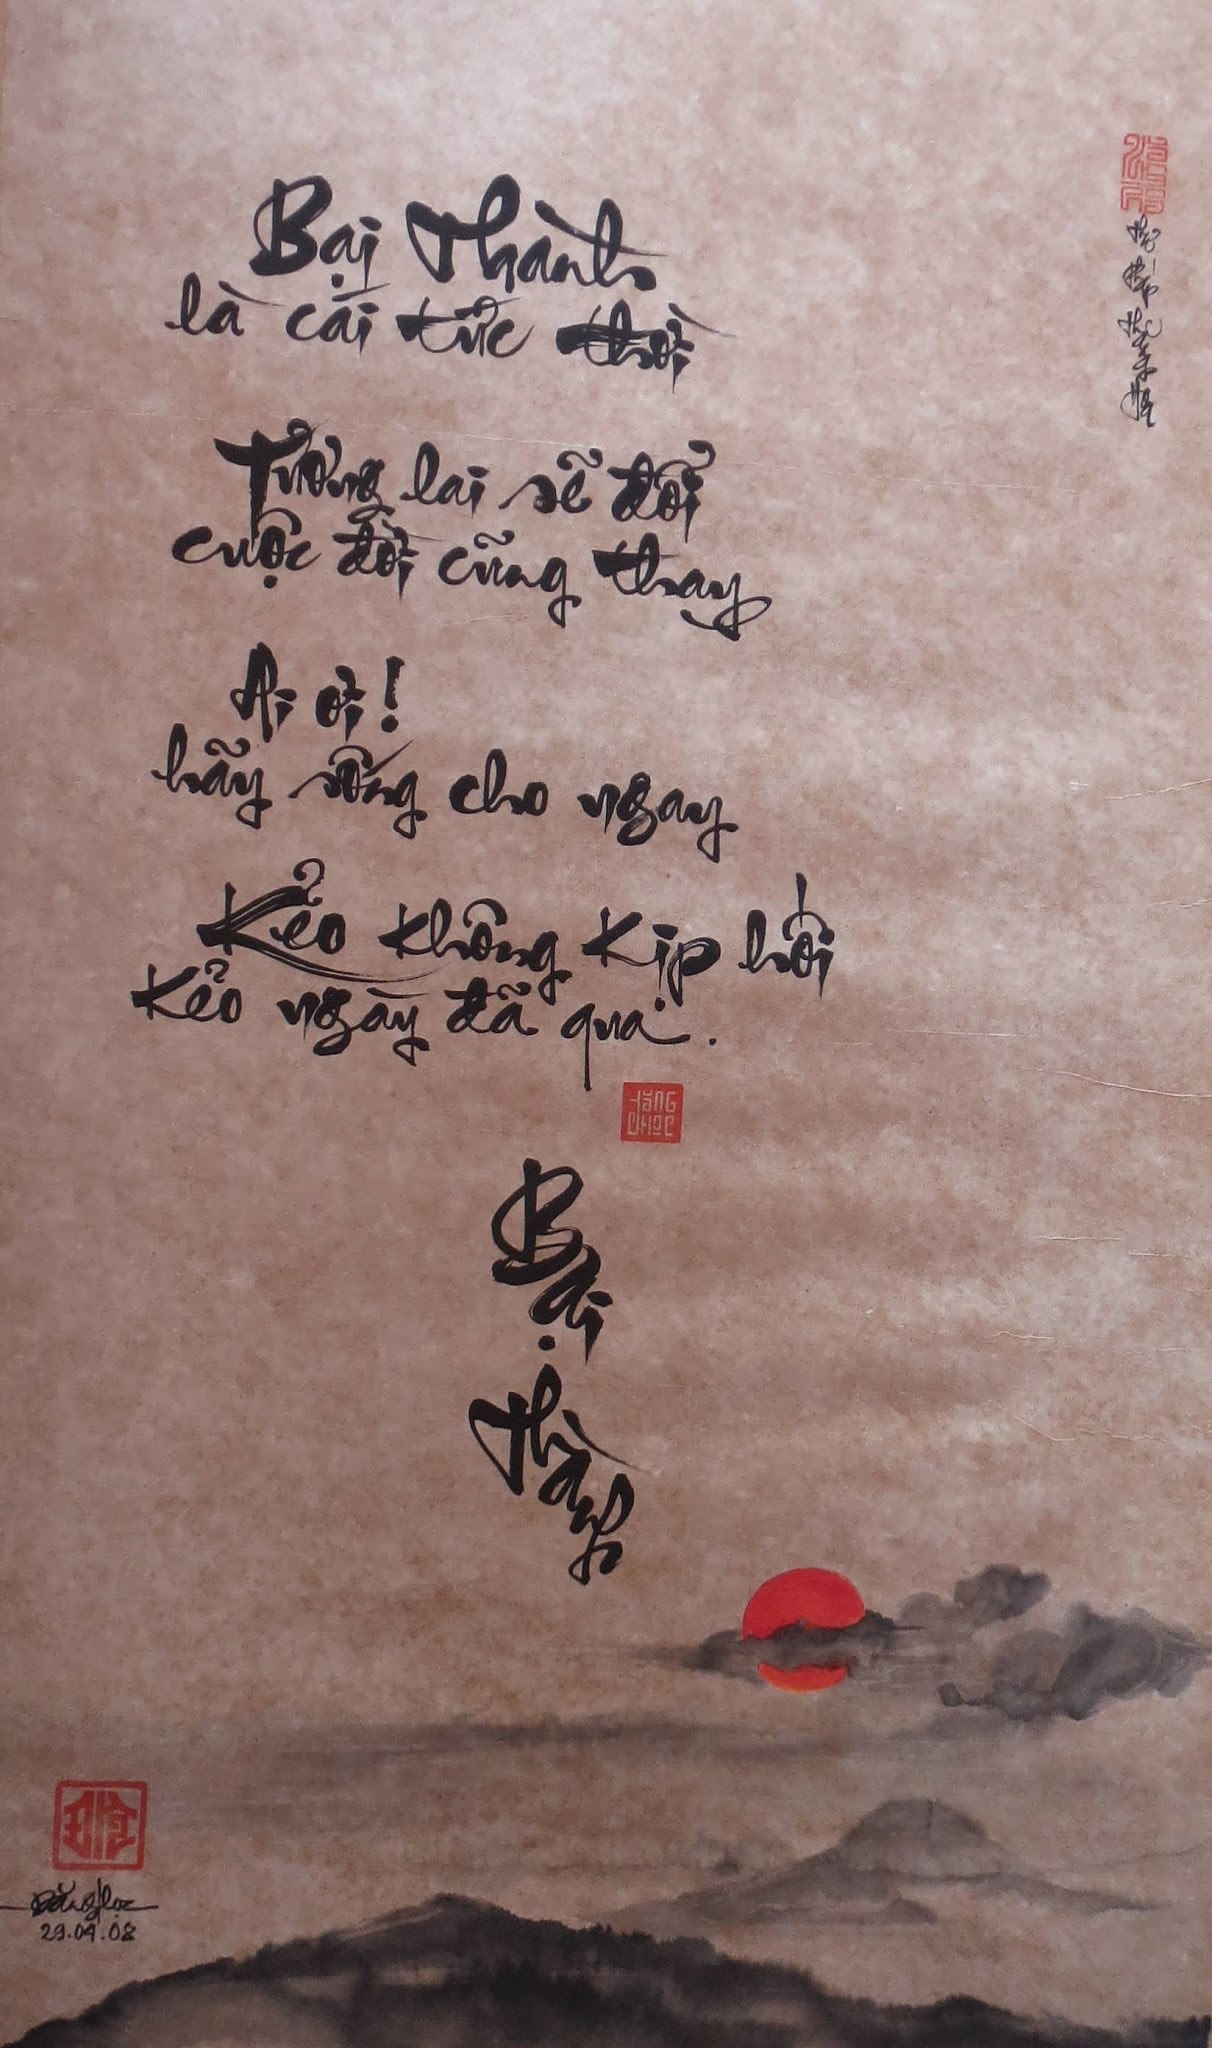 Bại Thành
là cái tức thời
Tương lai sẽ đổi
cuộc đời cũng thay
Ai ơi!
hãy sống cho ngay
Kẻo không kịp hối
Kẻo ngày đã qua.
ĐĂNG
HỌC
Bại
Thành
Đăng Học
29.04.08